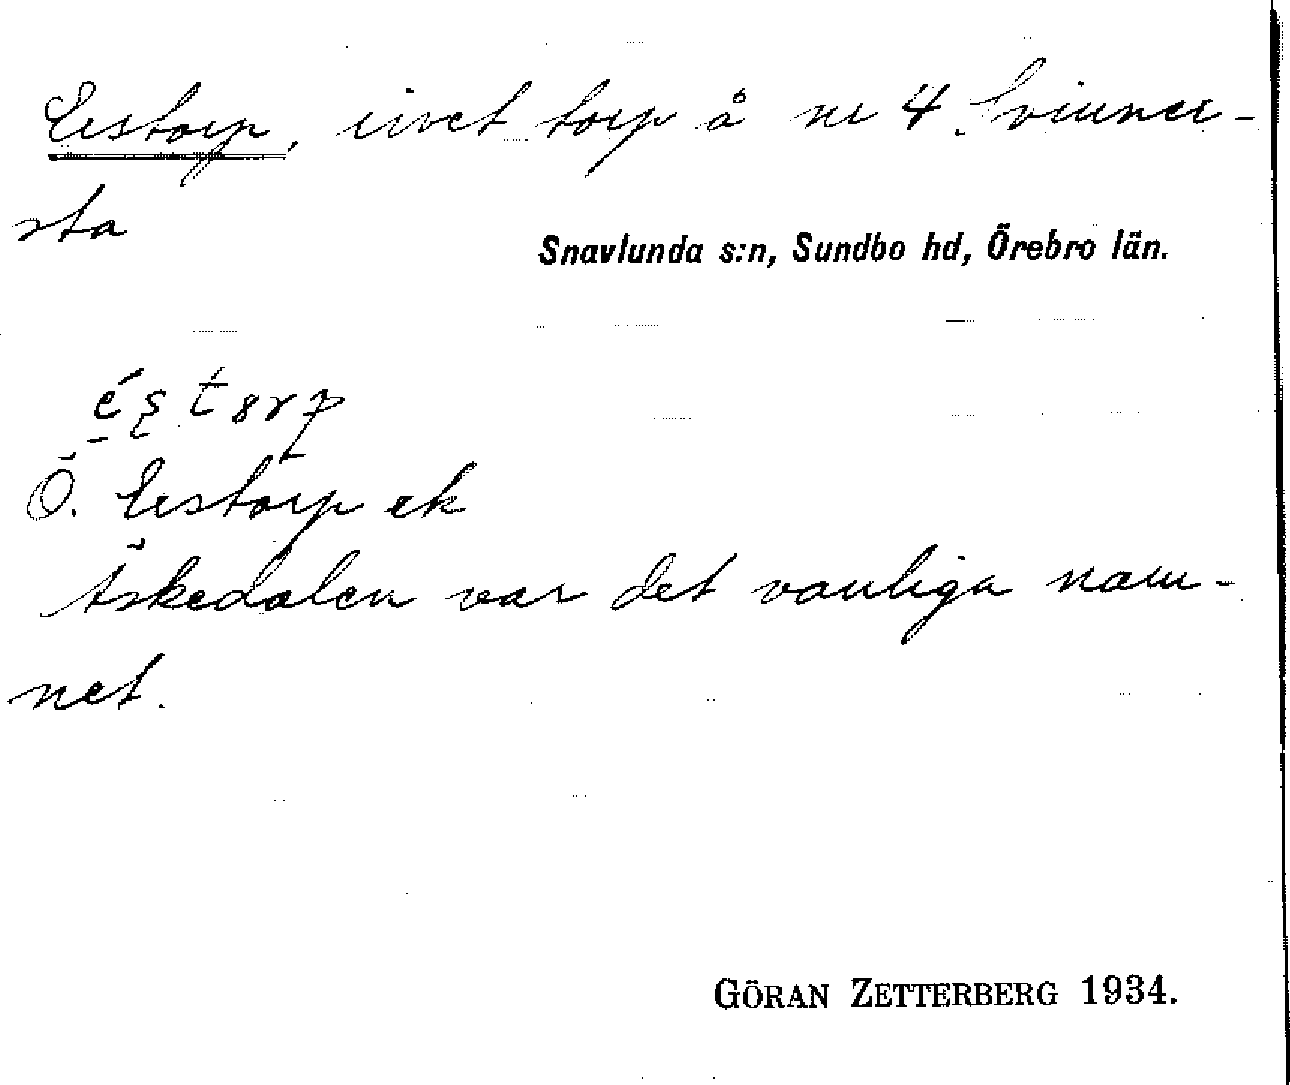 Erstorp, rivet torp å nr 4 Svinner-
sta
Snavlunda s:n, Sundbo hd, Örebro län.
Ö. Erstorp ek
Äskedalen var det vanliga nam-
net.
GÖRAN ZETTERBERG 1934.